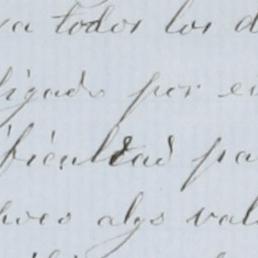 va todos los d
ligado por en
ificultad pa
algo val